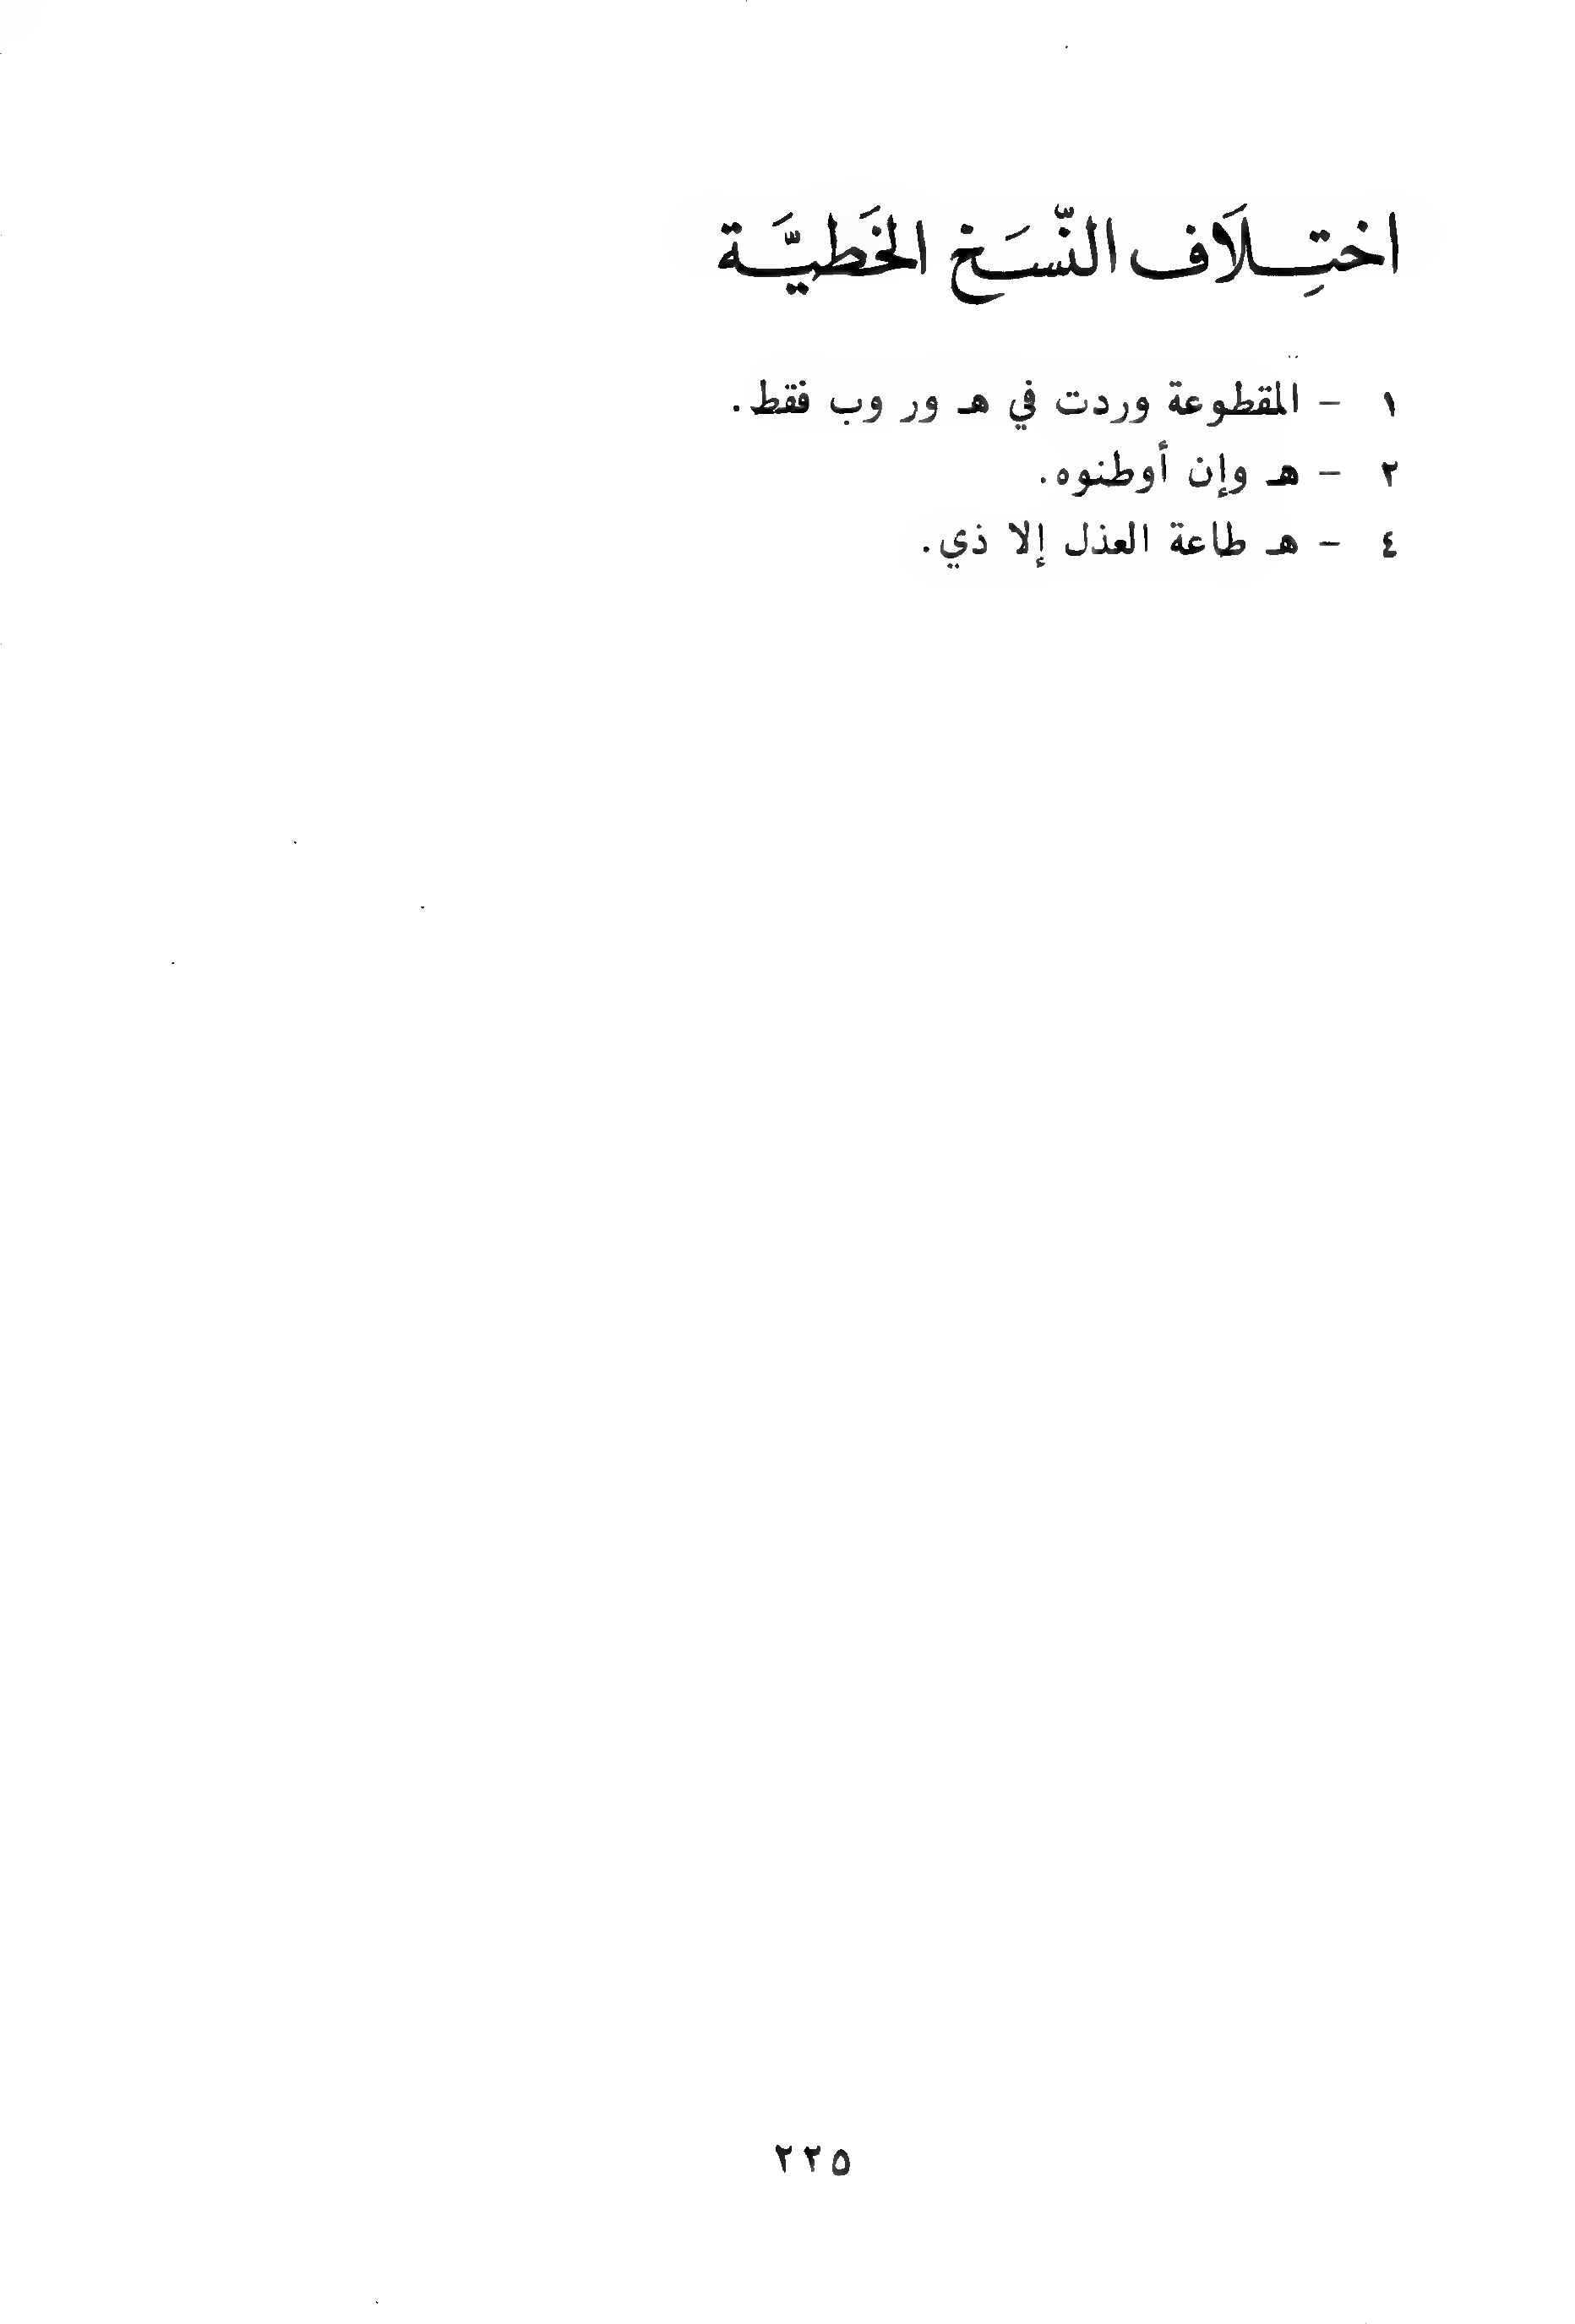 اختِلَاف النّسَخ الخَطيَّة
١ - المقطوعة وردت في هـ ور وب فقط.
٢ - هـ وإن أوطنوه.
٤ - هـ طاعة العذل إلا ذي.
٢٢٥